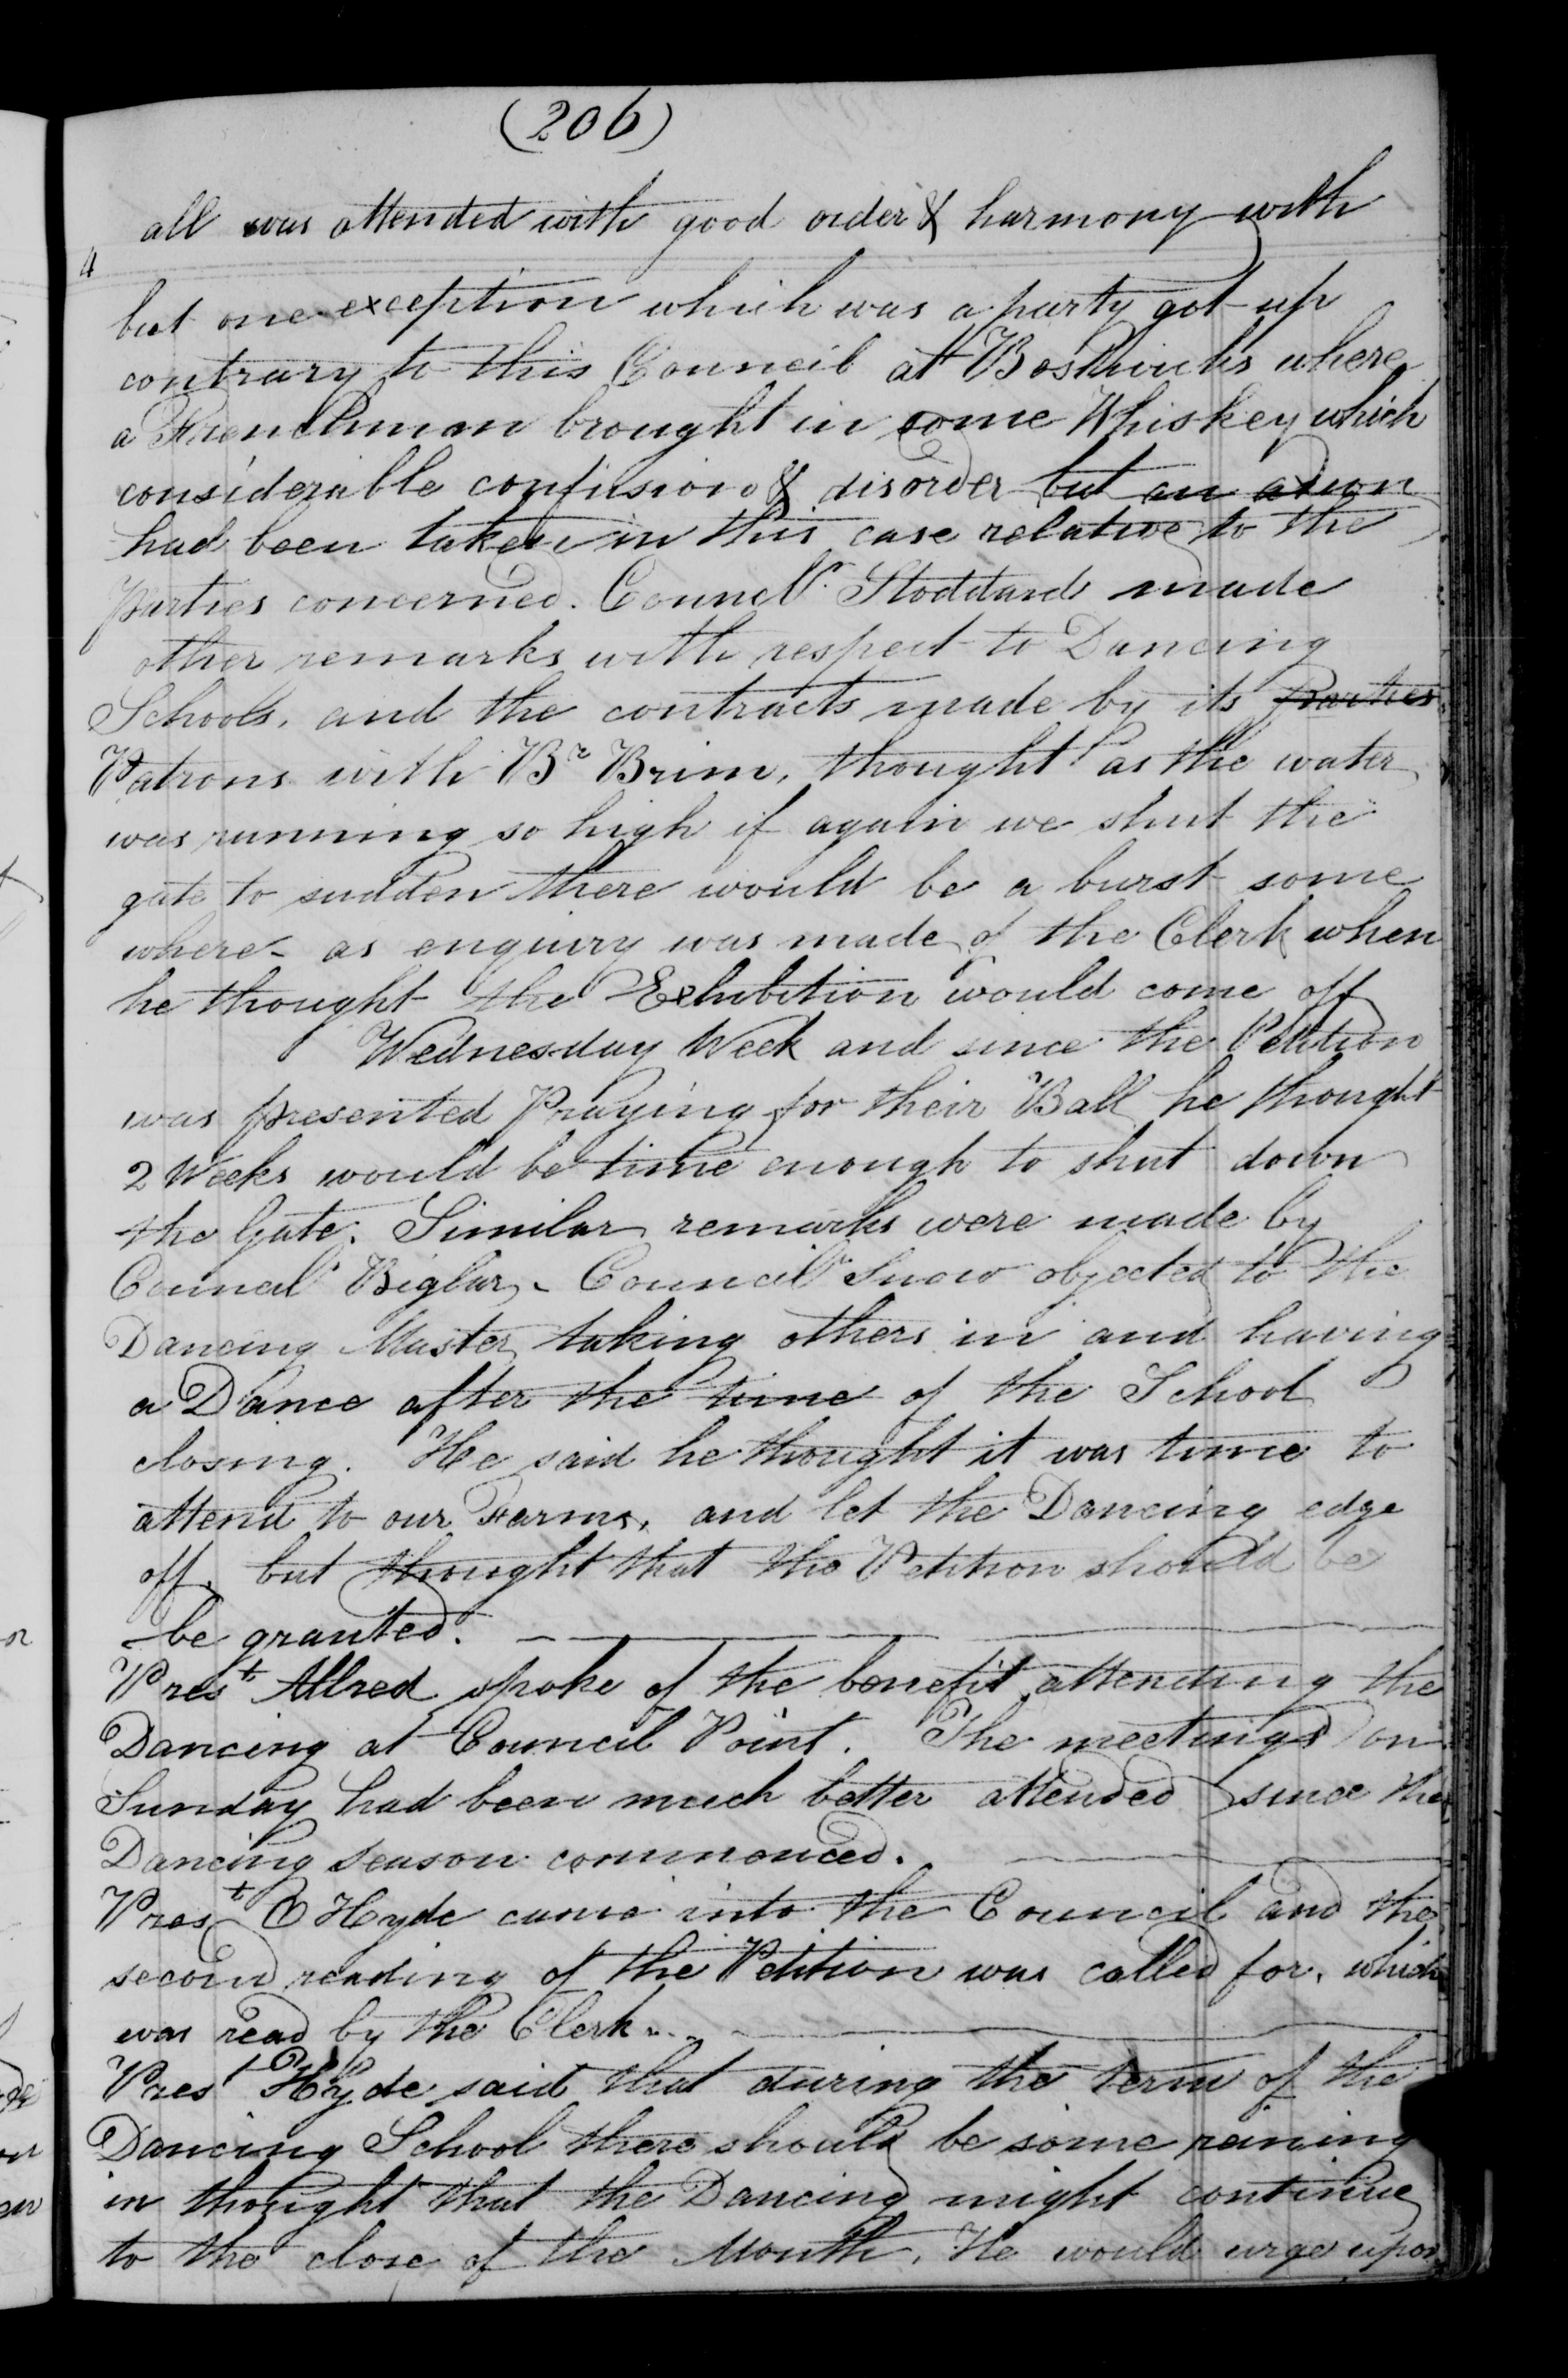 (206)
all was attended with good order & harmony with
4
but one exception which was a party got up
contrary to this Council at Bosthwicks where
a Frenchman brought in some Whiskey which
considerable confusion & disorder but an action
had been taken in this case relative to the
Parties concerned. Council^r. Stoddard made
other remarks with respect to Dancing
Schools, and the contracts made by its Parties
Patrons with B^r Brim, thought as the water
was running so high if again we shut the
gate to sudden there would be a burst some
where - as enquiry was made of the Clerk when
he thought the Exhibition would come off
Wednesday Week and since the Petition
was presented Praying for their Ball he thought
2 Weeks would be time enough to shut down
the Gate. Similar remarks were made by
Council^r Biglar - Council^r Snow objected to the
Dancing Master taking others in and having
a Dance after the time of the School
closing. He said he thought it was time to
attend to our Farms, and let the Dancing edge
off, but thought that the Petition should be
be granted.
Pres^t Allred spoke of the benefit attending the
Dancing at Council Point. The meetings on
Sunday had been much better attended since the
Dancing season commenced.
Pres^t O Hyde came into the Council and the
second reading of the Petition was called for, which
was read by the Clerk
Pres^t Hyde said that during the term of the
Dancing School there should be some reining
in thought that the Dancing might continue
to the close of the Month. He would urge upon